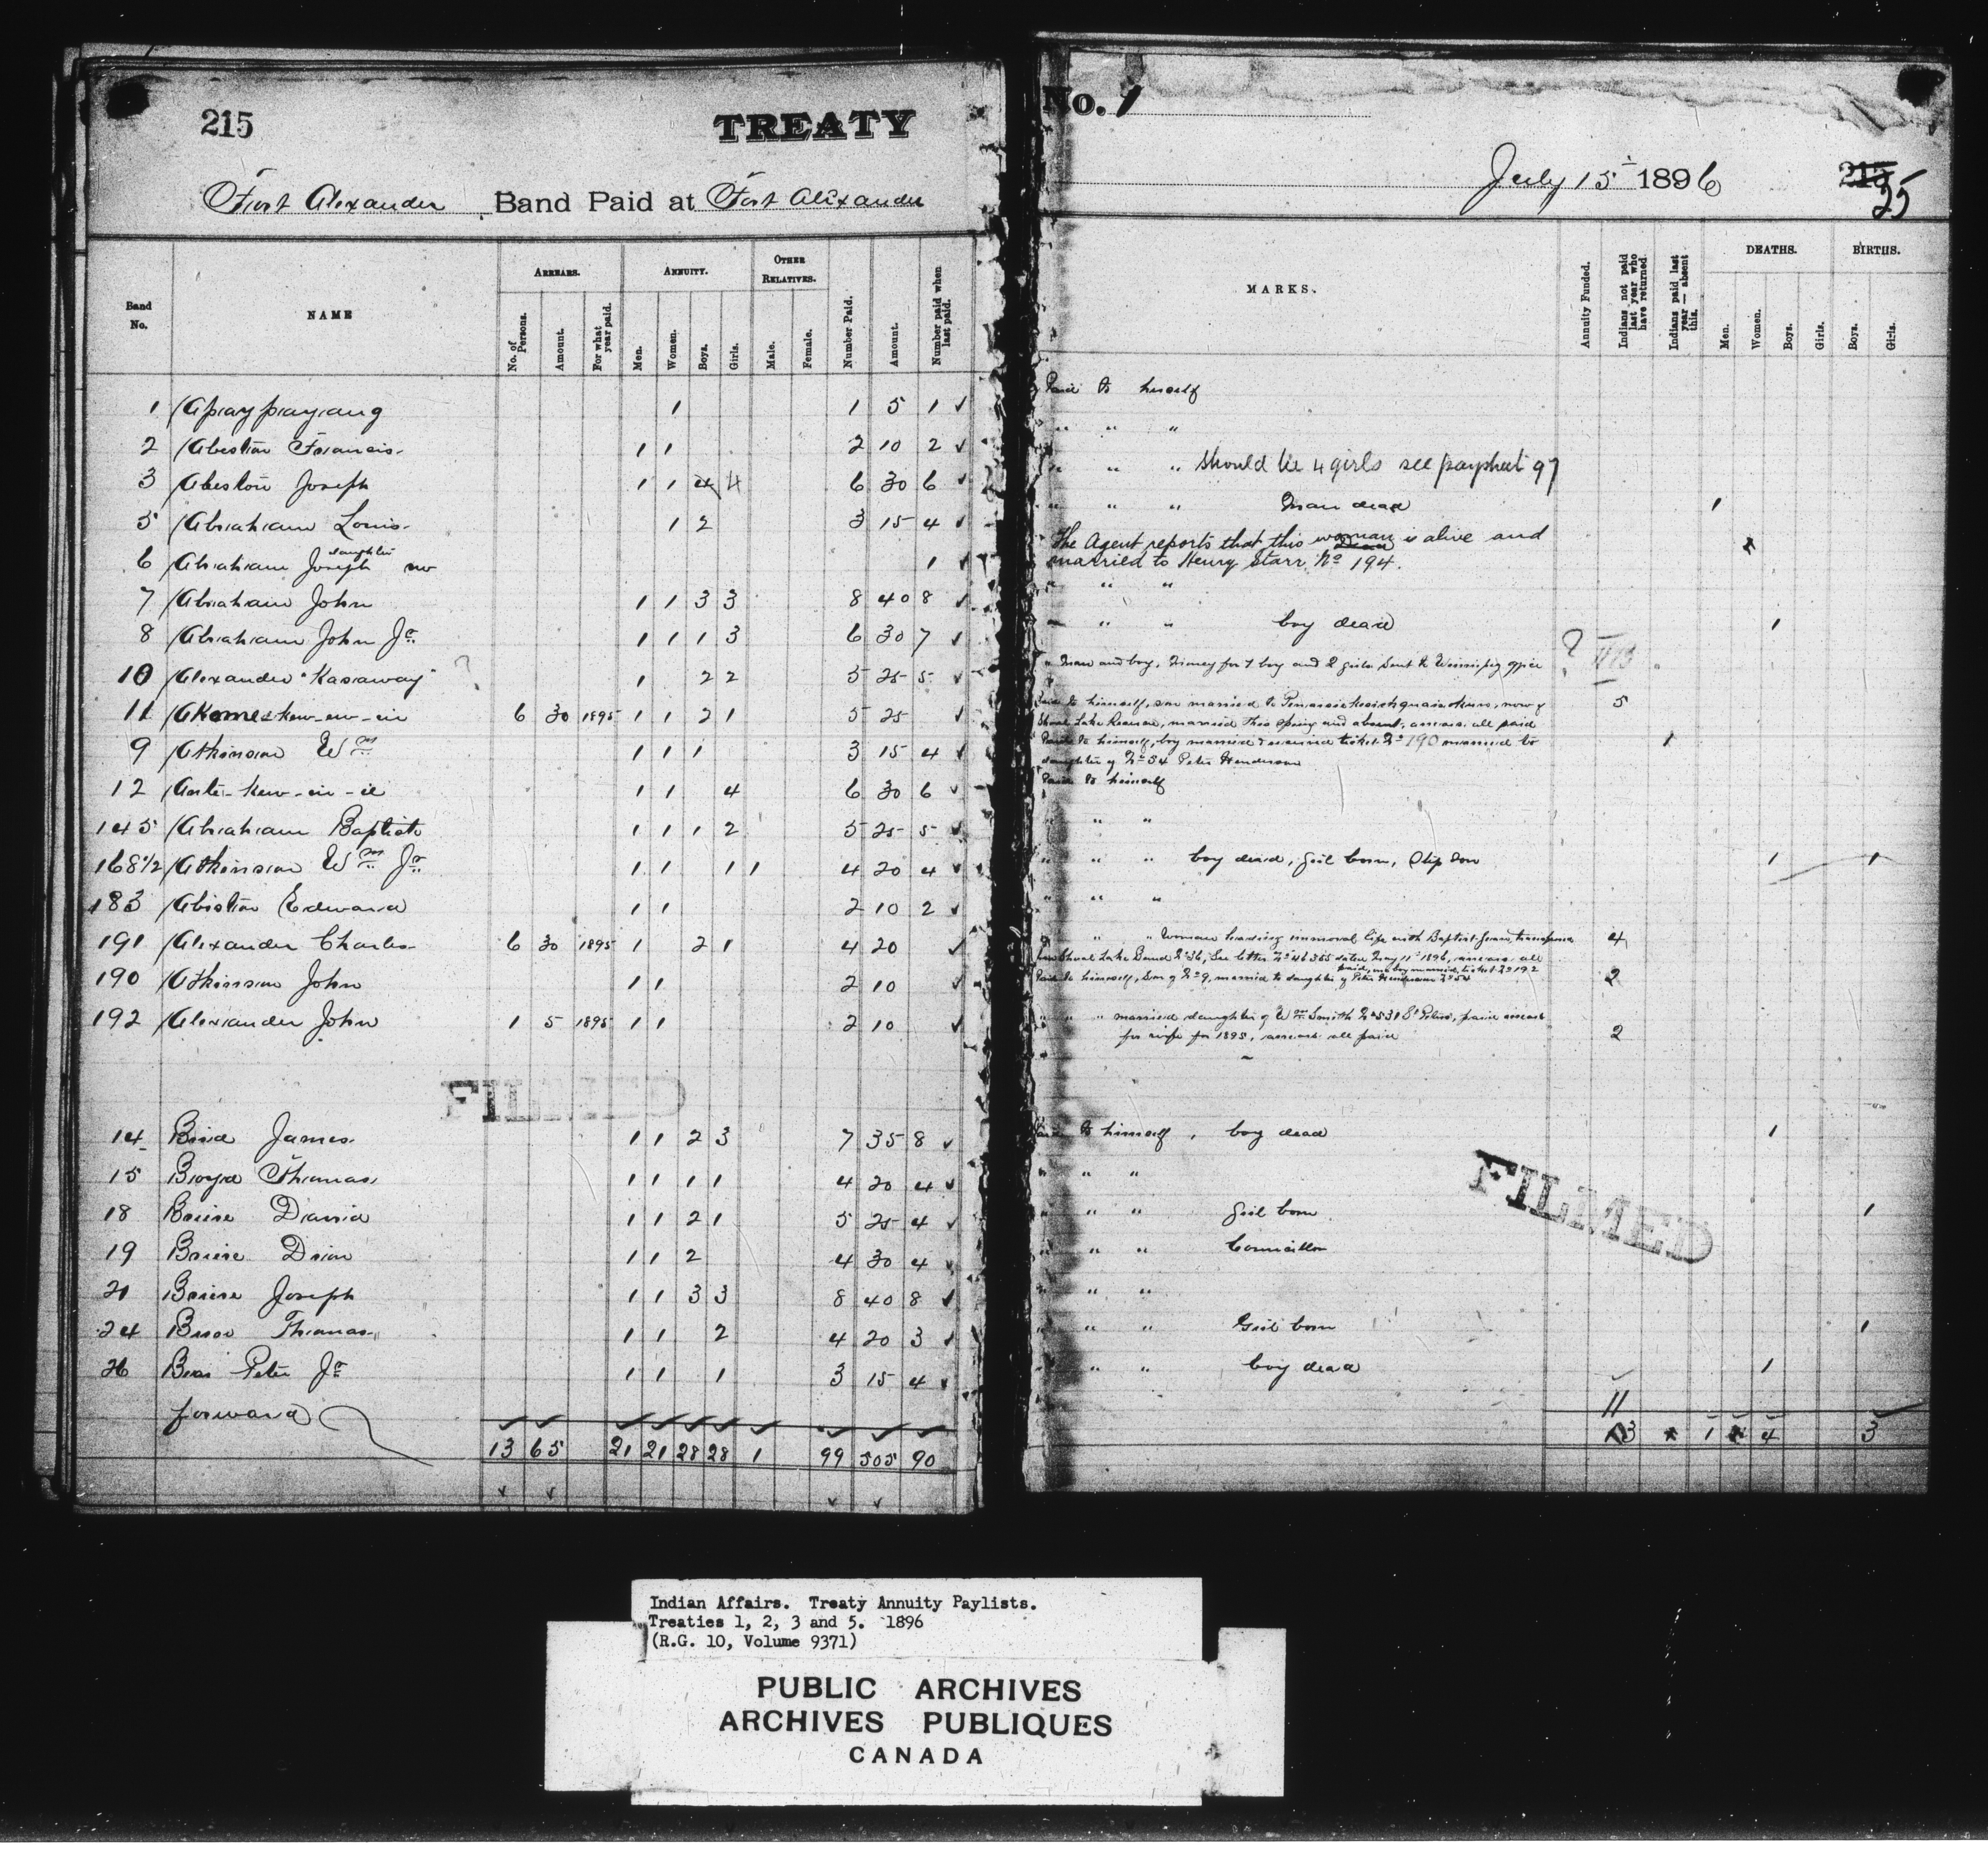 215
TREATY
No. 1
Fort Alexander Band Paid at Fort Alexander
July 15 1896
215
35
Band No.
NAME
ARREARS.
No. of Persons.
Amount.
For what year paid.
ANNUITY.
Men.
Women.
Boys.
Girls.
OTHER RELATIVES.
Male.
Female.
Number Paid.
Amount.
Number paid when last paid.
MARKS.
Annuity Funded.
Indians not paid last year who have returned.
Indians paid last year — absent this.
DEATHS.
Men.
Women.
Boys.
Girls.
BIRTHS.
Boys.
Girls.
1 1 1 5 1 ✓ Paid to himself
2 Francis 1 1 2 10 2 ✓ " " "
3 Joseph 1 1 4 4 6 30 6 ✓ " " " Should be 4 girls see paysheet 97
5 Abraham Louis 1 2 3 15 4 ✓ " " " Man dead 1
6 Abraham Joseph daughter 1 ✓ The Agent reports that this woman is alive and
married to Henry Starr No 194.
7 Abraham John 1 1 3 3 8 40 8 ✓ " " "
8 Abraham John Jr 1 1 1 3 6 30 7 ✓ " " " boy dead 1
10 Alexander Kasaway ? 1 2 2 5 25 5 ✓ " Man and boy, money for 1 boy and 2 girls sent to Winnipeg office ?
11 6 30 1895 1 1 2 1 5 25 ✓ Paid to himself, son married to now of 5
Shoal Lake married this spring and absent, arrears all paid
9 Atkinson Wm 1 1 1 3 15 4 ✓ Paid to himself, boy married & received ticket No 190 married to 1
daughter of No 54 Peter Henderson
12 1 1 4 6 30 6 ✓ Paid to himself
145 Abraham Baptiste 1 1 1 2 5 25 5 ✓ " " "
168½ Atkinson Wm Jr 1 1 1 1 4 20 4 ✓ " " " boy dead, girl born, Step Son 1 1
183 Edward 1 1 2 10 2 ✓ " " "
191 Alexander Charles 6 30 1895 1 2 1 4 20 ✓ " " " Woman leading immoral life with Baptist 4
Shoal Lake Band No 36, See letter No 46365 dated May 11th 1896, arrears all
paid, one boy married, ticket No 192
190 Atkinson John 1 1 2 10 Paid to himself, Son of No 9, married to daughter of Peter Henderson No 54 2
192 Alexander John 1 5 1895 1 1 2 10 ✓ " " " married daughter of Wm Smith No 531 St Peters, paid arrears
for wife for 1895, arrears all paid 2
FILMED
14 Bird James 1 1 2 3 7 35 8 ✓ Paid to himself, boy dead 1
15 Boyd Thomas 1 1 1 1 4 20 4 ✓ " " "
18 David 1 1 2 1 5 25 4 ✓ " " " Girl born 1
FILMED
19 1 1 2 4 30 4 ✓ " " " Councillor
21 Joseph 1 1 3 3 8 40 8 ✓ " " "
24 Thomas 1 1 2 4 20 3 ✓ " " " Girl born 1
26 Peter Jr 1 1 1 3 15 4 ✓ " " " boy dead 1
forward
11
13 65 21 21 28 28 1 99 505 90 13 1 4 3
Indian Affairs. Treaty Annuity Paylists.
Treaties 1, 2, 3 and 5. 1896
(R.G. 10, Volume 9371)
PUBLIC ARCHIVES
ARCHIVES PUBLIQUES
CANADA